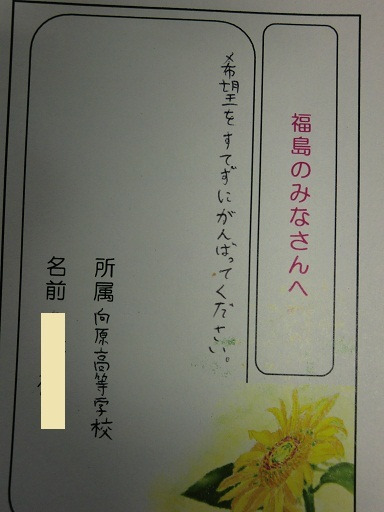 福島のみなさんへ
希望をすてずにがんばってください。
所属 向原高等学校
名前